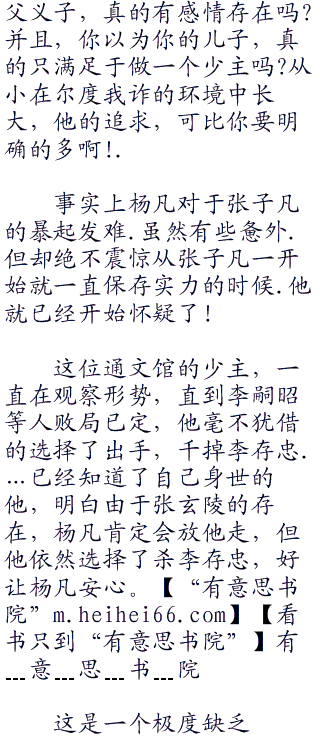 父义子，真的有感情存在吗？
并且，你以为你的儿子，真
的只满足于做一个少主吗？从
小在尔度我诈的环境中长
大，他的追求，可比你要明
确的多啊！.
事实上杨凡对于张子凡
的暴起发难.虽然有些惫外.
但却绝不震惊从张子凡一开
始就一直保存实力的时候.他
就已经开始怀疑了！
这位通文馆的少主，一
直在观察形势，直到李嗣昭
等人败局已定，他毫不犹借
的选择了出手，千掉李存忠.
…已经知道了自己身世的
他，明白由于张玄陵的存
在，杨凡肯定会放他走，但
他依然选择了杀李存忠，好
让杨凡安心。【“有意思书
院”m.heihei66.com】【看
书只到“有意思书院”】有
---意---思---书---院
这是一个极度缺乏